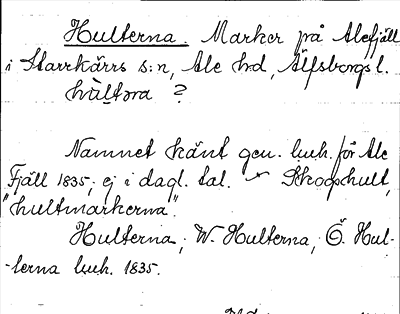 Hulterna. Marker på Alefjäll
i Starrkärrs s:n, Ale hd, Älfsborgs l.
hùltɒra ?
Namnet känt gen. luh. för Ale
Fjäll 1835, ej i dagl. tal. Skogshult,
"hultmarkerna".
Hulterna, W. Hulterna, Ö. Hul-
-terna luh. 1835.